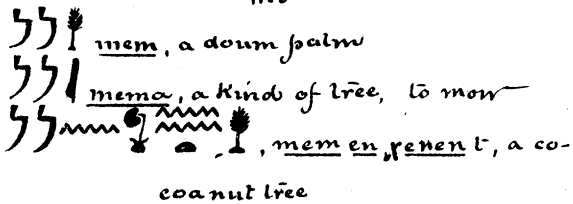 mem, a doum palm
mema, a kind of tree, to mow
mem en χenent, a co-
coanut tree